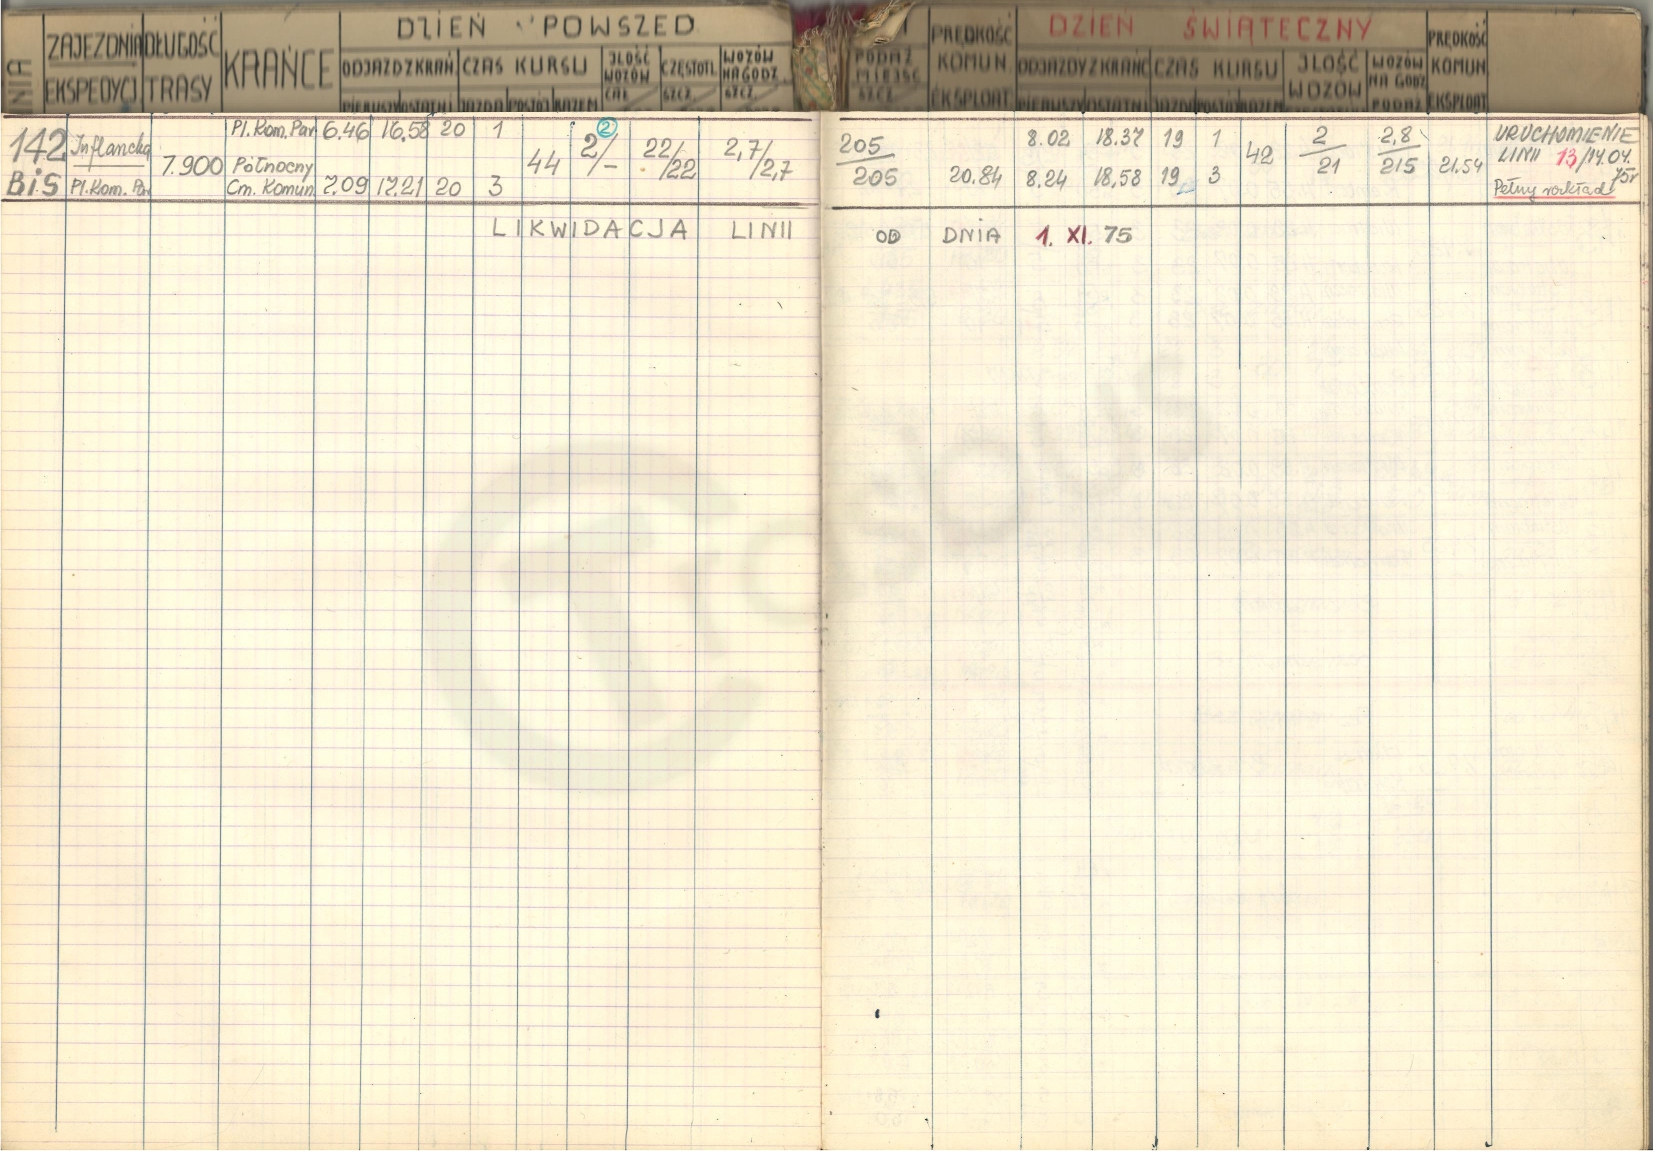 DZIEŃ POWSZED
DZIEŃ ŚWIĄTECZNY
NIA ZAJEZDNIA DŁUGOŚĆ KRAŃCE ODJAZD Z KRAŃ CZAS KURSU JLOŚĆ WOZÓW CZĘSTOTL WOZÓW NA GODZ.
EKSPEDYCJ TRASY PIERUSZY OSTATNI JAZDA POSTOJ RAZEM CAŁ. SZCZ. SZCZ.
PODAŻ MIEJSC SZCZ. PRĘDKOŚĆ KOMUN. EKSPLOAT. ODJAZDY Z KRAŃC CZAS KURSU JLOŚĆ WOZÓW WOZÓW NA GODZ PODAŻ PRĘDKOŚĆ KOMUN. EKSPLOAT
PIERUSZY OSTATNI JAZDA POSTOJ RAZEM
142 Inflancka Pl. Kom. Par 6.46 16.58 20 1 2/– ② 22/22 2,7/2,7
7.900 Północny 44
BiS Pl. Kom. Par Cm. Komun. 7.09 17.21 20 3
205 8.02 18.37 19 1 42 2 2,8 URUCHOMIENIE
LINII 13/14.04.
205 20.84 8.24 18,58 19 3 21 215 21.54 75r
Pełny rozkład
LIKWIDACJA LINII OD DNIA 1. XI. 75
Trasbus